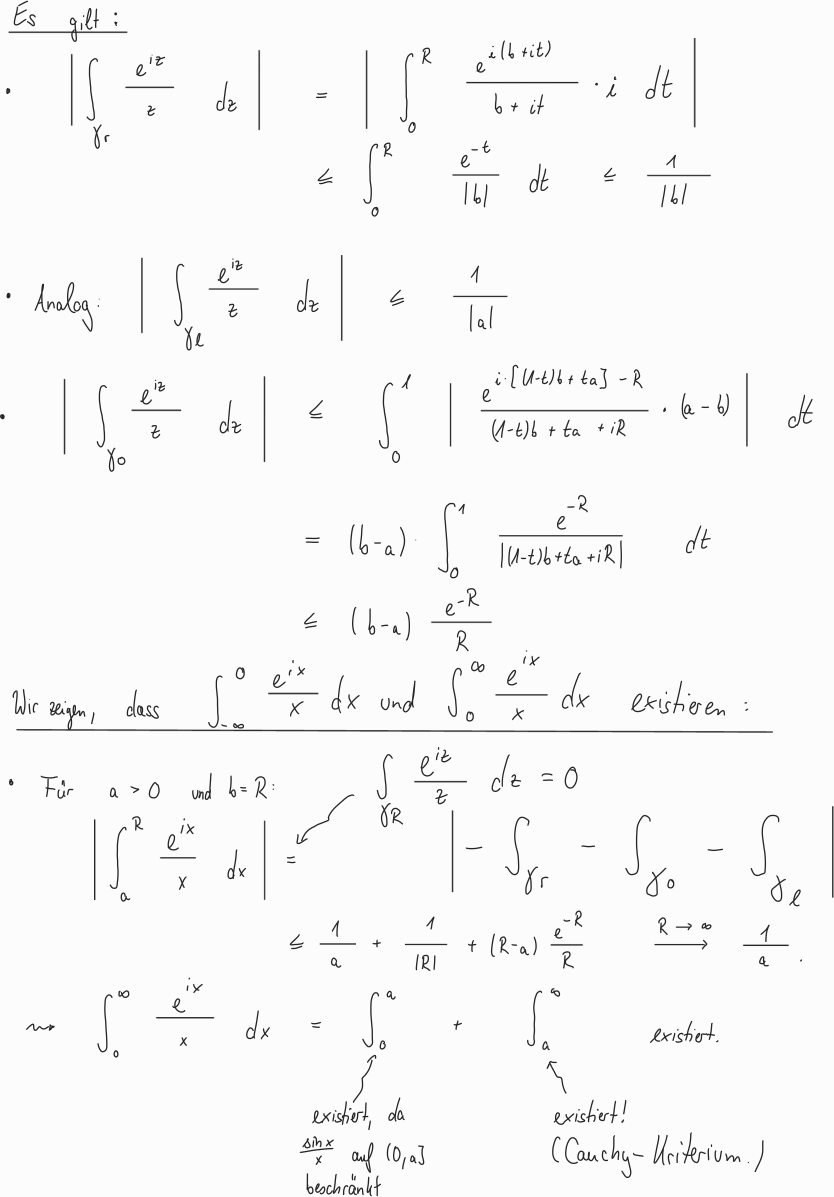 Es gilt:
• | ∫_{γr} e^{iz}/z dz | = | ∫_0^R e^{i(b+it)}/(b+it) · i dt |
≤ ∫_0^R e^{-t}/|b| dt ≤ 1/|b|
• Analog: | ∫_{γl} e^{iz}/z dz | ≤ 1/|a|
• | ∫_{γo} e^{iz}/z dz | ≤ ∫_0^1 | e^{i·[(1-t)b+ta]-R}/((1-t)b+ta+iR) · (a-b) | dt
= (b-a) · ∫_0^1 e^{-R}/|(1-t)b+ta+iR| dt
≤ (b-a) e^{-R}/R
Wir zeigen, dass ∫_{-∞}^0 e^{ix}/x dx und ∫_0^∞ e^{ix}/x dx existieren:
• Für a > 0 und b = R: ∫_{γR} e^{iz}/z dz = 0
| ∫_a^R e^{ix}/x dx | = | - ∫_{γr} - ∫_{γo} - ∫_{γl} |
≤ 1/a + 1/|R| + (R-a) e^{-R}/R ⟶^{R→∞} 1/a .
⇝ ∫_0^∞ e^{ix}/x dx = ∫_0^a + ∫_a^∞ existiert.
existiert, da
sin x/x auf (0,a]
beschränkt
existiert!
(Cauchy-Kriterium.)